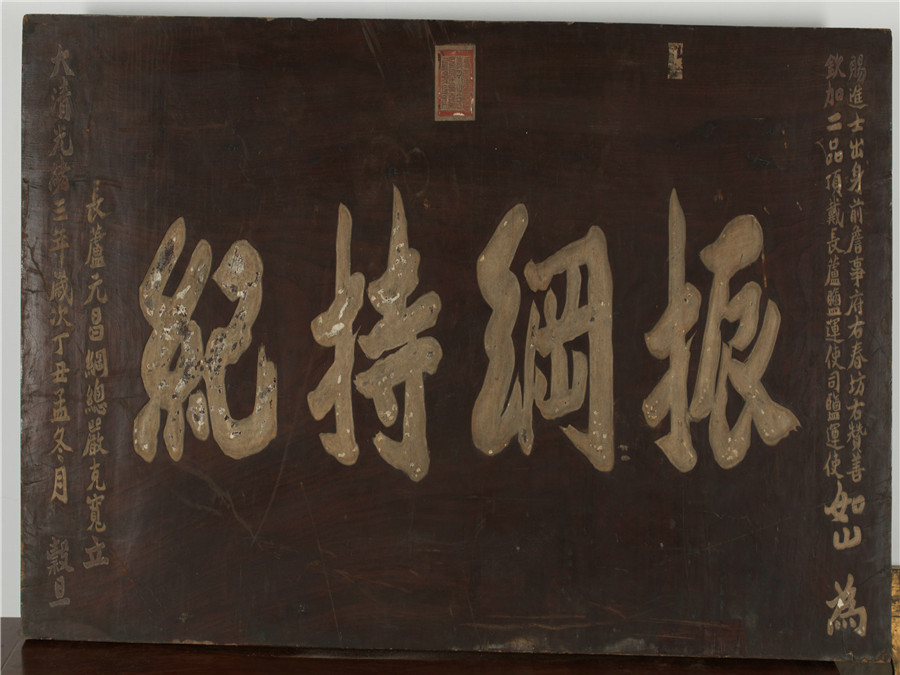 賜進士出身前詹事府右春坊右贊善
欽加二品頂戴長蘆鹽運使司鹽運使如山 為
振綱持紀
長蘆元昌綱總嚴克寬立
大清光緒三年歲次丁丑孟冬月 穀旦